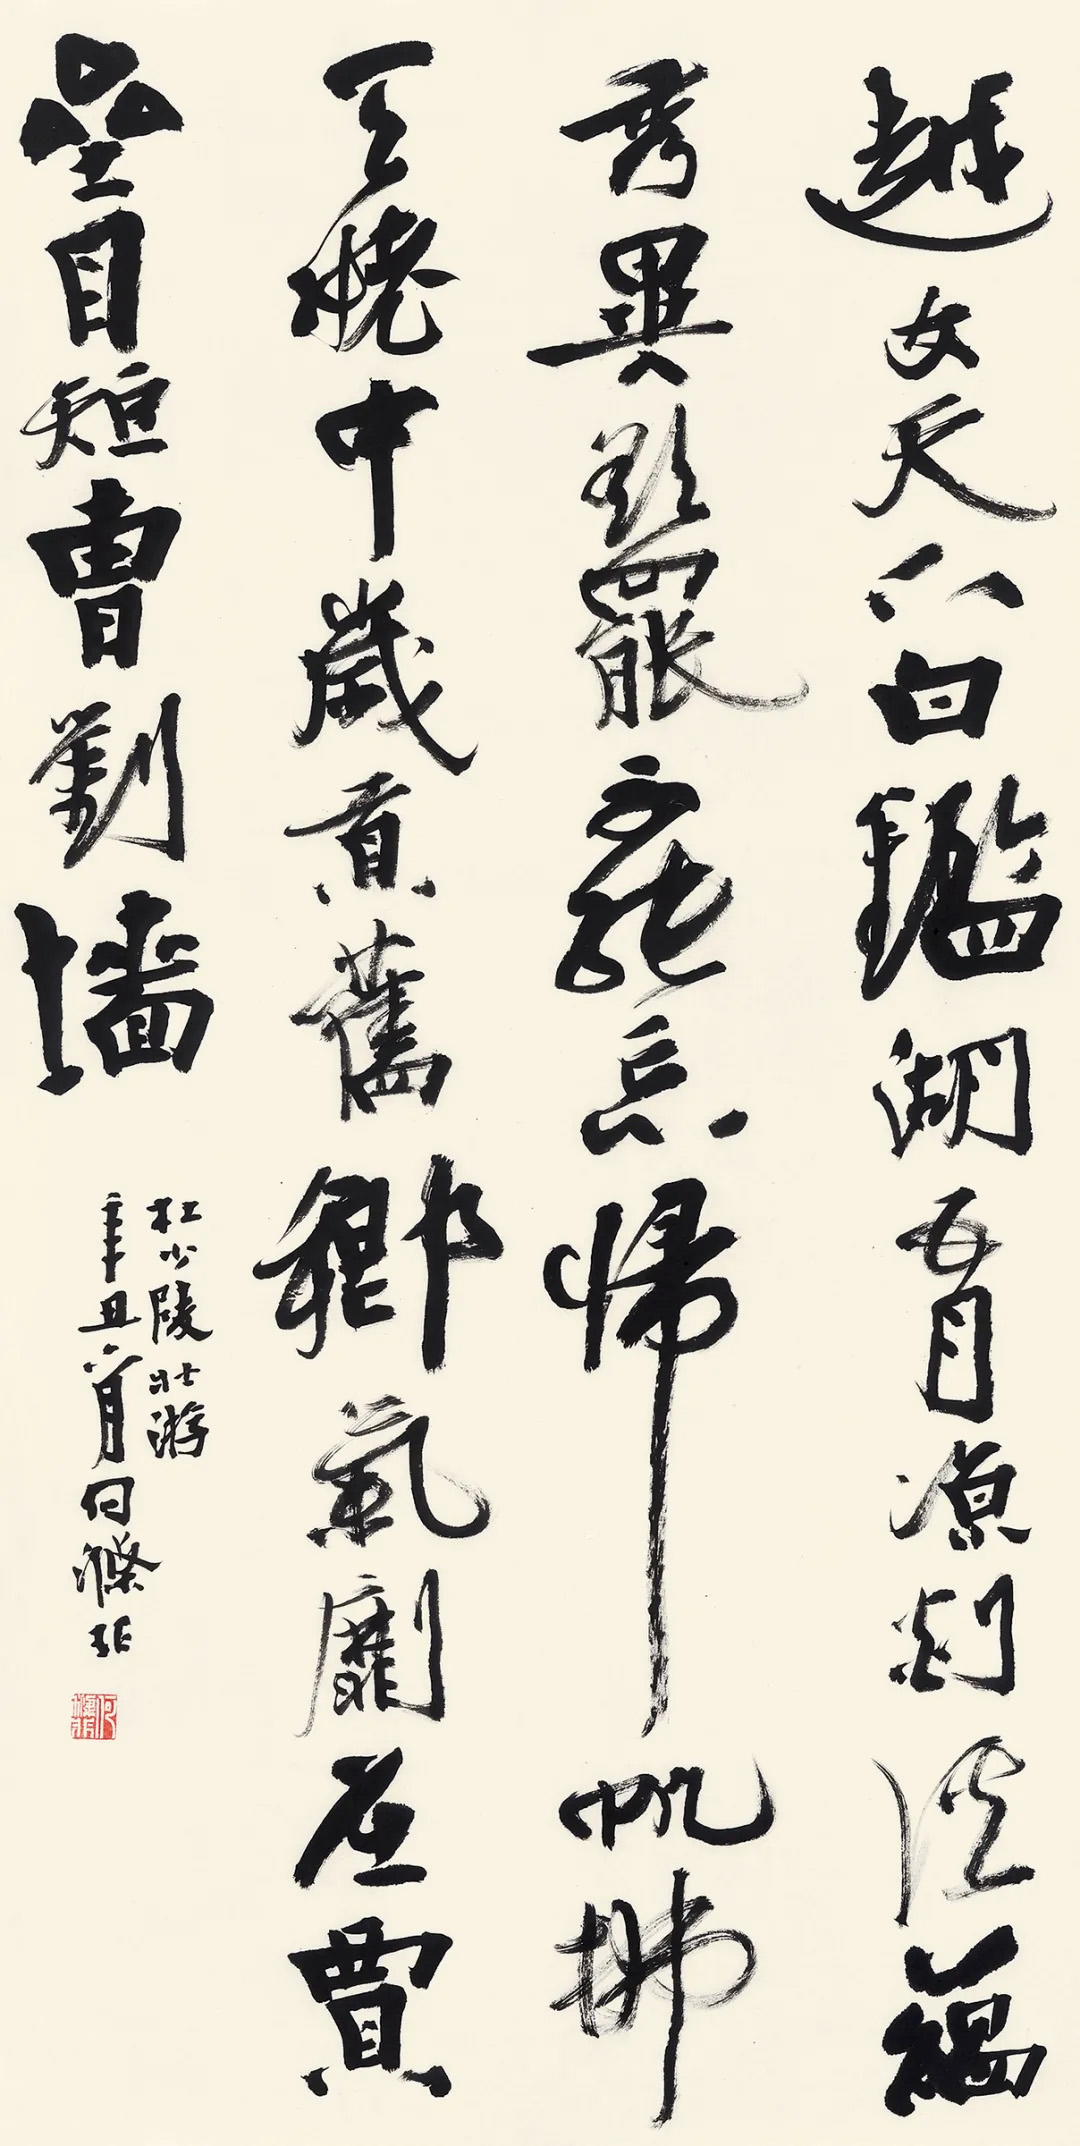 越女天下白鑑湖五月涼剡溪蘊
秀異欲罷不能忘帰帆拂
天姥中歲貢舊鄉氣劘屈賈
垒目短曹劉墻
杜少陵壯游
辛丑六月何滌非